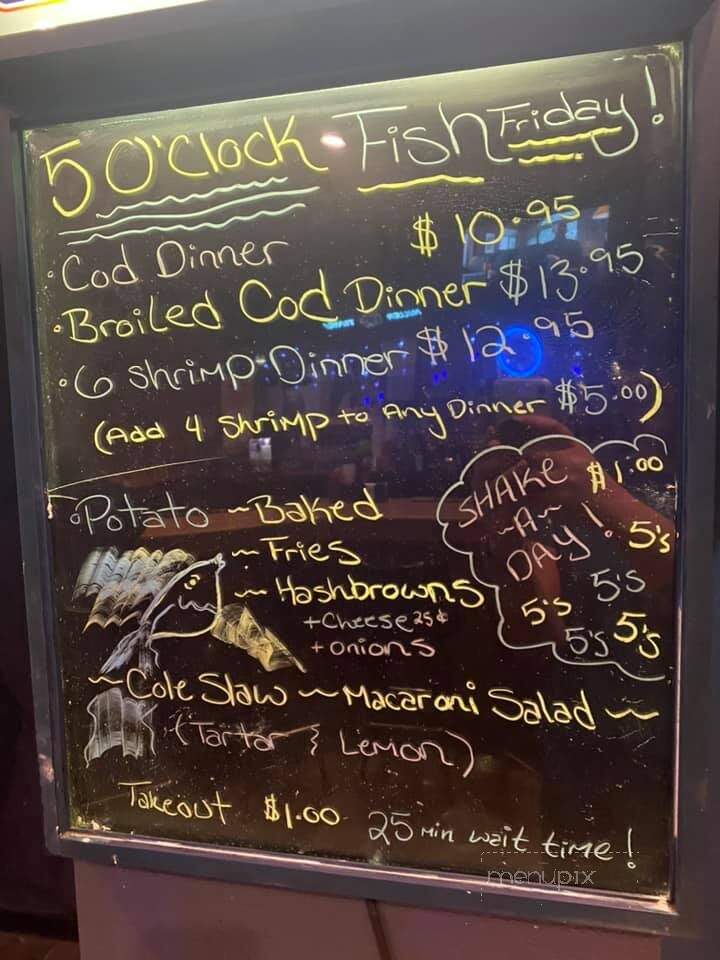 5 O'Clock Fish Friday!
• Cod Dinner $10.95
• Broiled Cod Dinner $13.95
• 6 Shrimp Dinner $12.95
(Add 4 Shrimp to Any Dinner $5.00)
• Potato ~ Baked
~ Fries
~ Hashbrowns
+ Cheese 25¢
+ onions
SHAKE $1.00
~A~
DAY! 5's
5's 5's
5's 5's
~ Cole Slaw ~ Macaroni Salad ~
(Tartar & Lemon)
Takeout $1.00
25 min wait time!
menupix